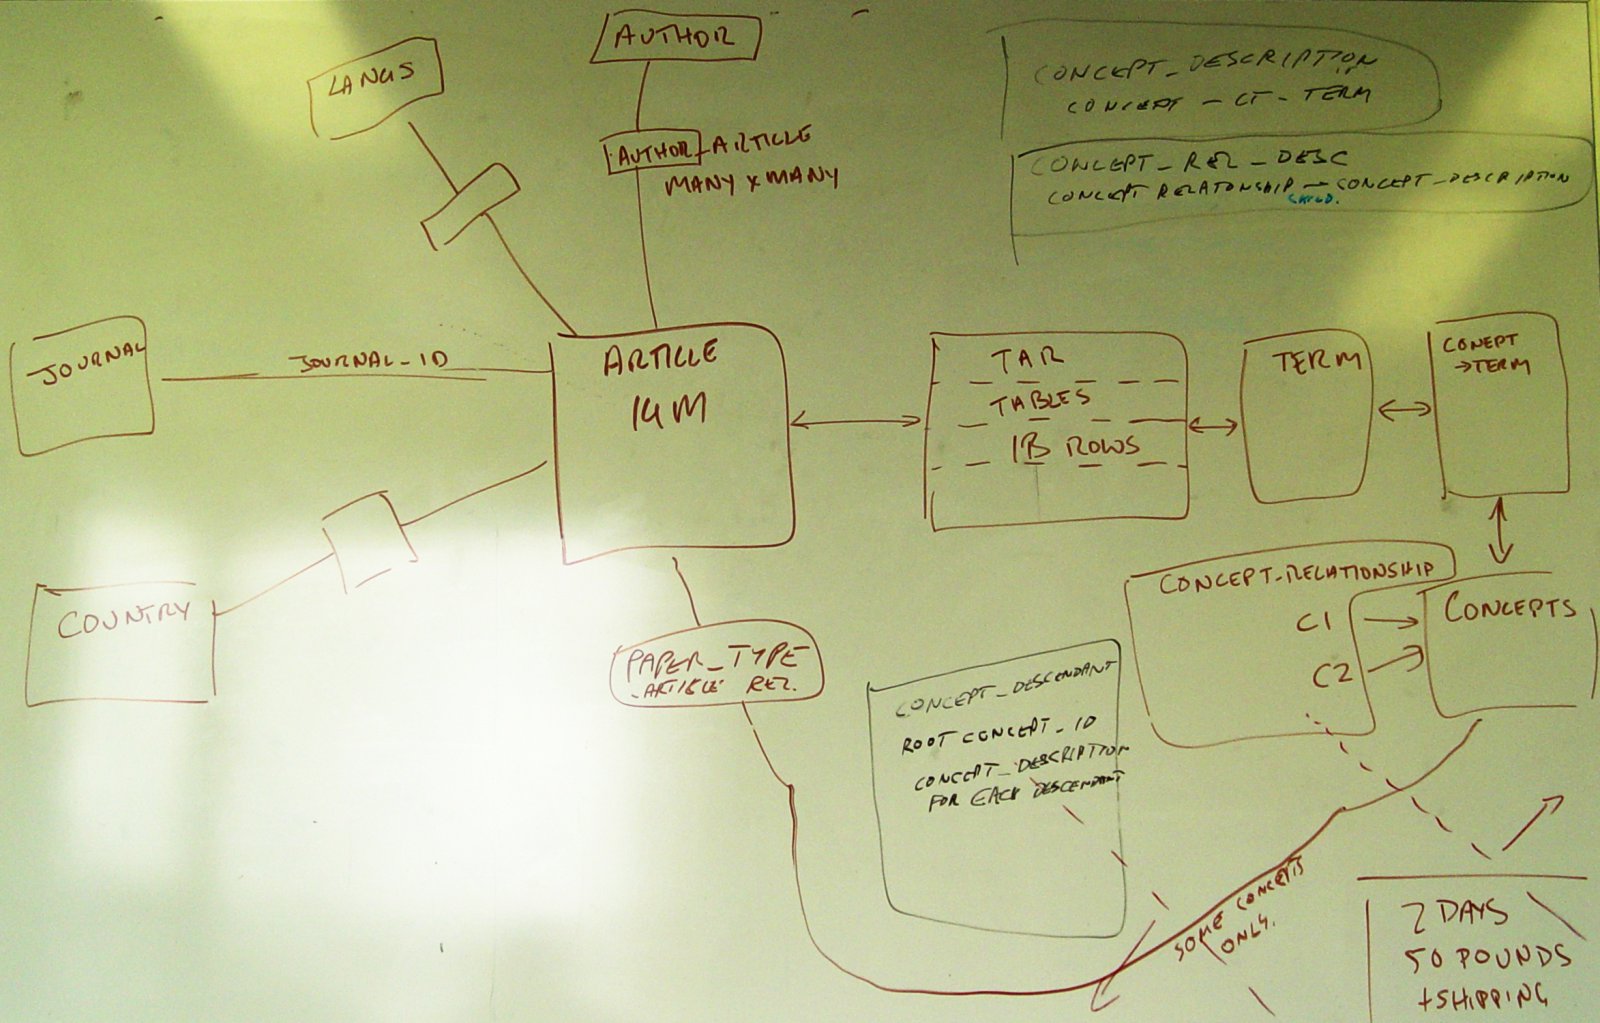 LANGS
AUTHOR
AUTHOR-ARTICLE
MANY x MANY
CONCEPT_DESCRIPTION
CONCEPT - CT - TERM
CONCEPT_REL_DESC
CONCEPT RELATONSHIP - CONCEPT_DESCRIPTION
CHILD.
JOURNAL
JOURNAL-ID
ARTICLE
TAR
TABLES
1B ROWS
TERM
CONEPT
→TERM
COUNTRY
PAPER_TYPE
-ARTICLE REL.
CONCEPT-RELATIONSHIP
C1
C2
CONCEPTS
CONCEPT_DESCENDANT
ROOT CONCEPT_ID
CONCEPT_DESCRIPTION
FOR EACH DESCENDANT
SOME CONCEPTS
ONLY.
2 DAYS
50 POUNDS
+SHIPPING